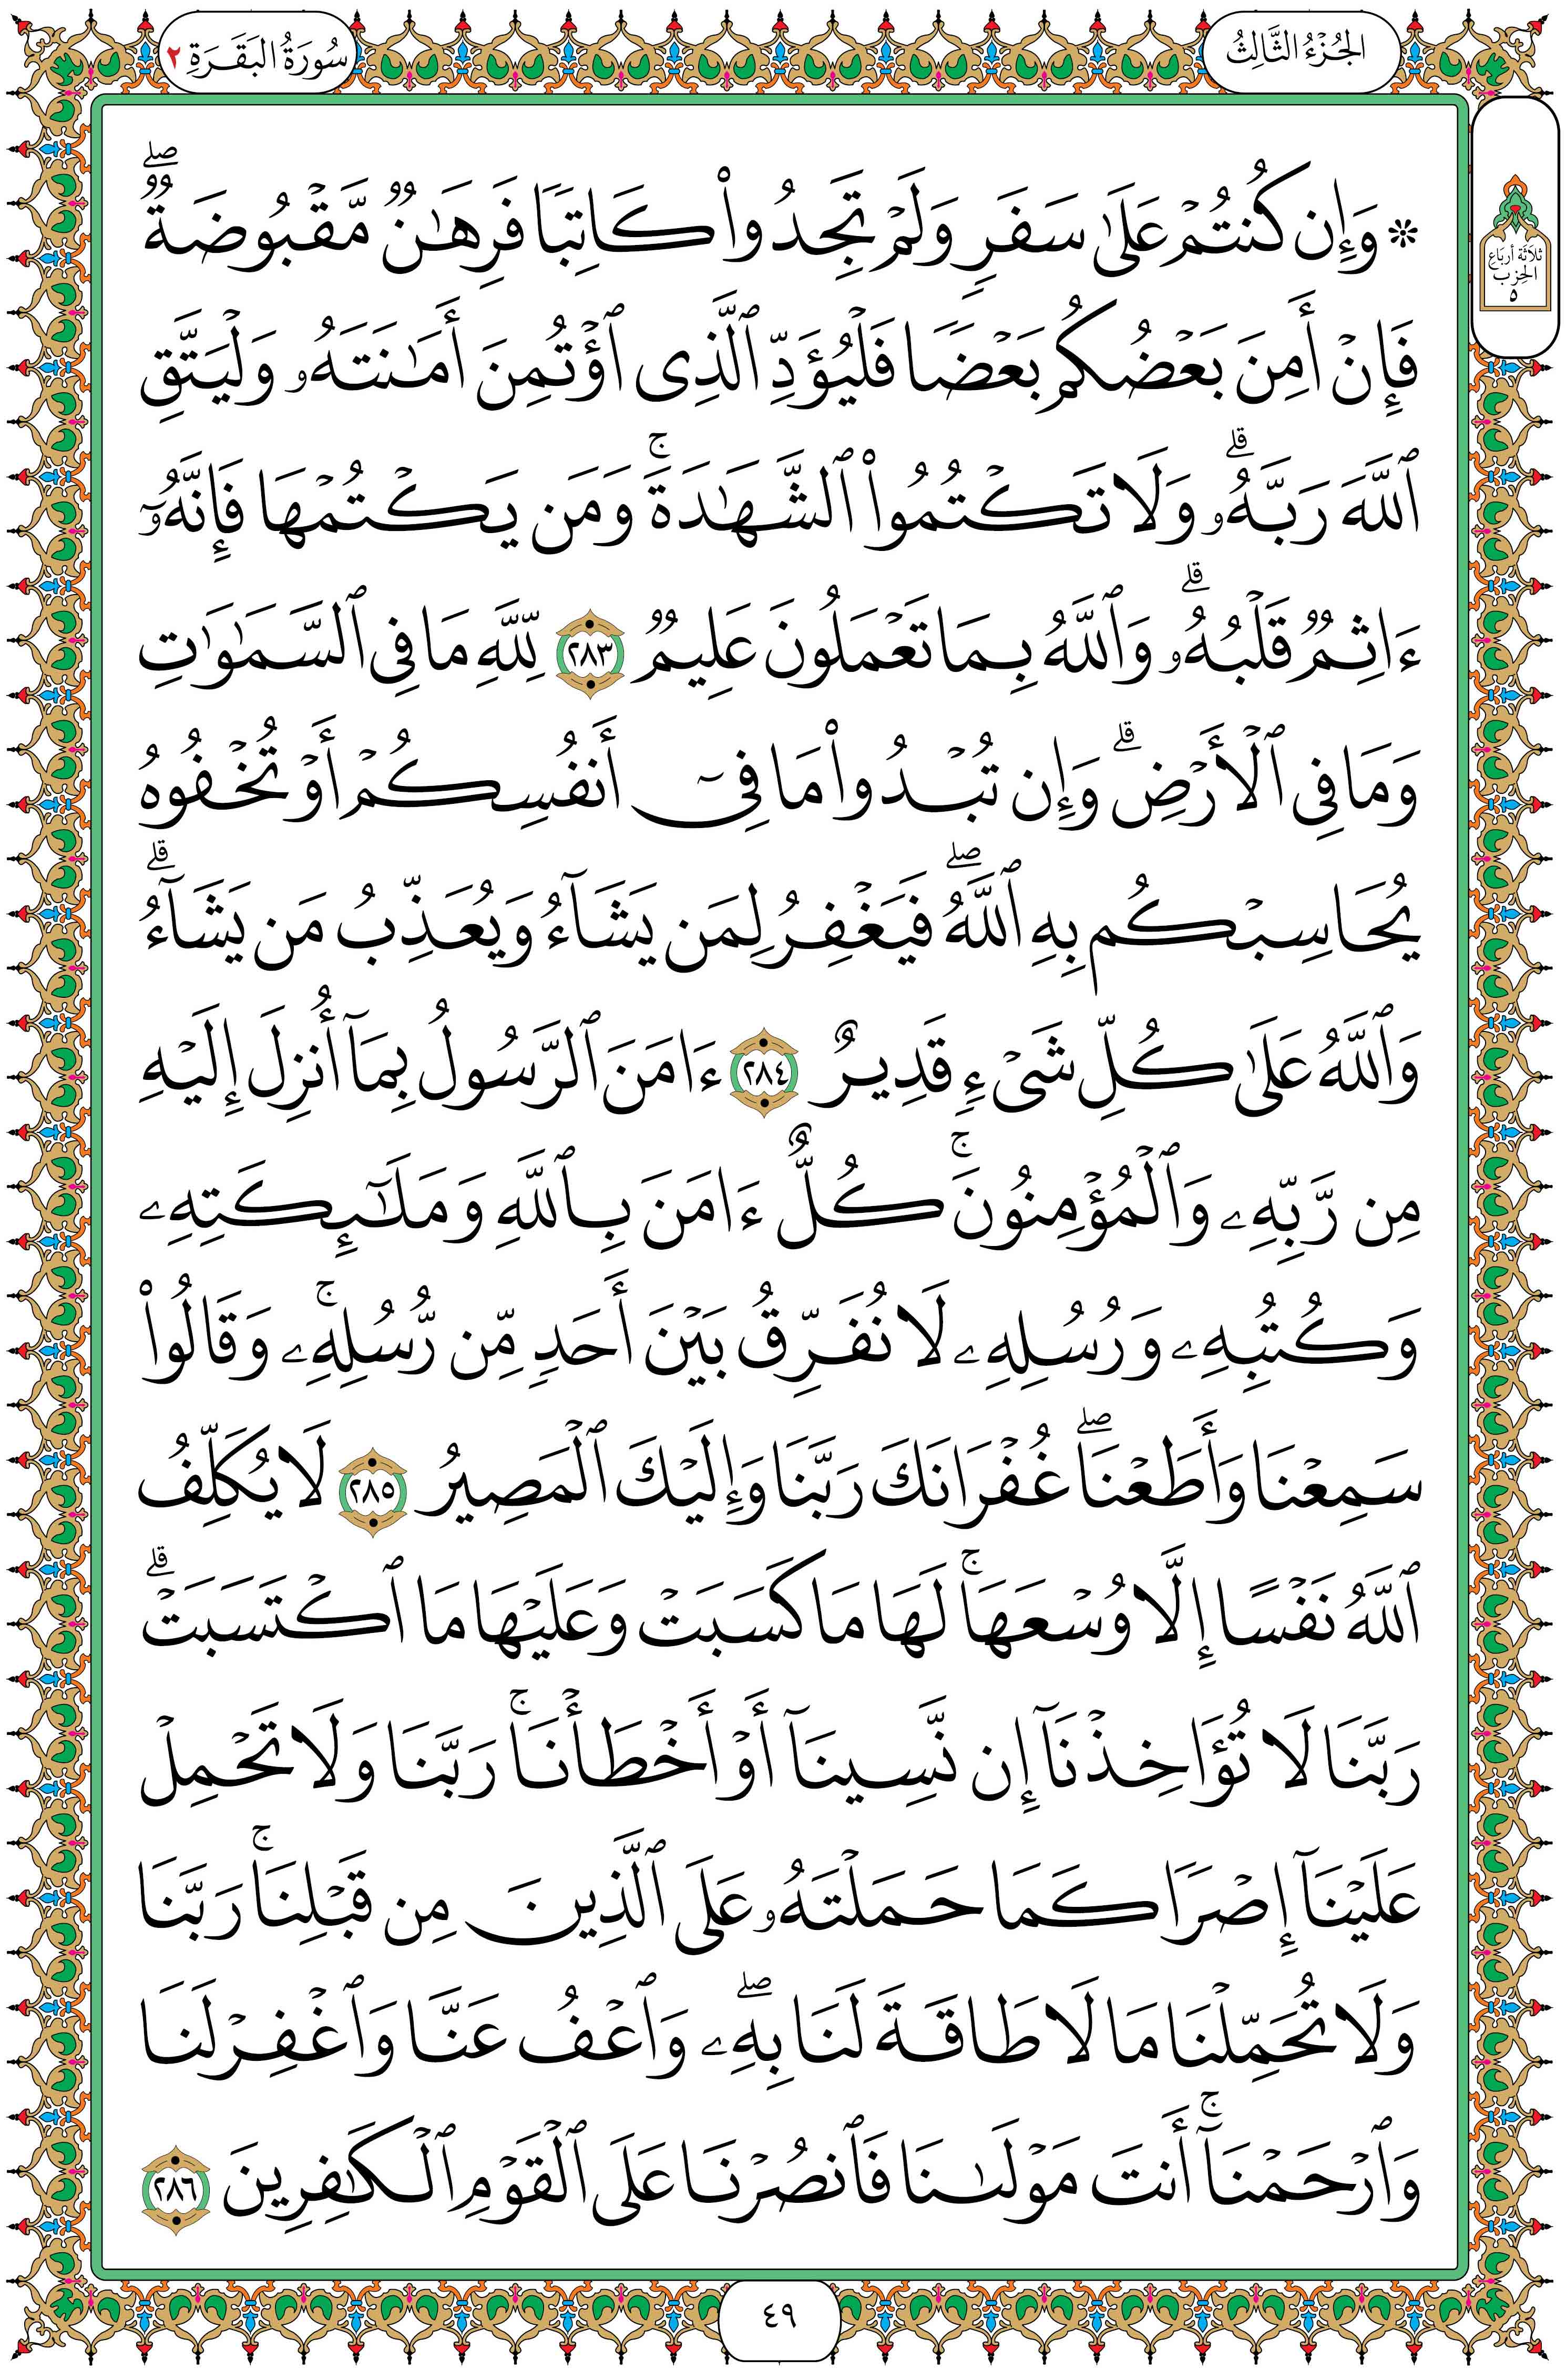 الجُزْءُ الثَّالِثُ
سُورَةُ البَقَرَةِ ٢
ثَلَاثَةُ أَرْبَاعِ
الحِزْبِ
٥
۞ وَإِن كُنتُمْ عَلَىٰ سَفَرٍ وَلَمْ تَجِدُوا۟ كَاتِبًا فَرِهَـٰنٌ مَّقْبُوضَةٌ ۖ
فَإِنْ أَمِنَ بَعْضُكُم بَعْضًا فَلْيُؤَدِّ ٱلَّذِى ٱؤْتُمِنَ أَمَـٰنَتَهُۥ وَلْيَتَّقِ
ٱللَّهَ رَبَّهُۥ ۗ وَلَا تَكْتُمُوا۟ ٱلشَّهَـٰدَةَ ۚ وَمَن يَكْتُمْهَا فَإِنَّهُۥٓ
ءَاثِمٌ قَلْبُهُۥ ۗ وَٱللَّهُ بِمَا تَعْمَلُونَ عَلِيمٌ ٢٨٣ لِّلَّهِ مَا فِى ٱلسَّمَـٰوَٰتِ
وَمَا فِى ٱلْأَرْضِ ۗ وَإِن تُبْدُوا۟ مَا فِىٓ أَنفُسِكُمْ أَوْ تُخْفُوهُ
يُحَاسِبْكُم بِهِ ٱللَّهُ ۖ فَيَغْفِرُ لِمَن يَشَآءُ وَيُعَذِّبُ مَن يَشَآءُ ۗ
وَٱللَّهُ عَلَىٰ كُلِّ شَىْءٍ قَدِيرٌ ٢٨٤ ءَامَنَ ٱلرَّسُولُ بِمَآ أُنزِلَ إِلَيْهِ
مِن رَّبِّهِۦ وَٱلْمُؤْمِنُونَ ۚ كُلٌّ ءَامَنَ بِٱللَّهِ وَمَلَـٰٓئِكَتِهِۦ
وَكُتُبِهِۦ وَرُسُلِهِۦ لَا نُفَرِّقُ بَيْنَ أَحَدٍ مِّن رُّسُلِهِۦ ۚ وَقَالُوا۟
سَمِعْنَا وَأَطَعْنَا ۖ غُفْرَانَكَ رَبَّنَا وَإِلَيْكَ ٱلْمَصِيرُ ٢٨٥ لَا يُكَلِّفُ
ٱللَّهُ نَفْسًا إِلَّا وُسْعَهَا ۚ لَهَا مَا كَسَبَتْ وَعَلَيْهَا مَا ٱكْتَسَبَتْ ۗ
رَبَّنَا لَا تُؤَاخِذْنَآ إِن نَّسِينَآ أَوْ أَخْطَأْنَا ۚ رَبَّنَا وَلَا تَحْمِلْ
عَلَيْنَآ إِصْرًا كَمَا حَمَلْتَهُۥ عَلَى ٱلَّذِينَ مِن قَبْلِنَا ۚ رَبَّنَا
وَلَا تُحَمِّلْنَا مَا لَا طَاقَةَ لَنَا بِهِۦ ۖ وَٱعْفُ عَنَّا وَٱغْفِرْ لَنَا
وَٱرْحَمْنَآ ۚ أَنتَ مَوْلَىٰنَا فَٱنصُرْنَا عَلَى ٱلْقَوْمِ ٱلْكَـٰفِرِينَ ٢٨٦
٤٩